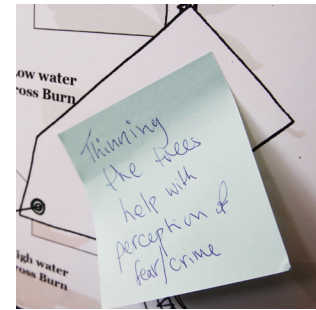 ow water
ross Burn
Thinning
the trees
help with
perception of
fear/crime
igh water
oss Burn